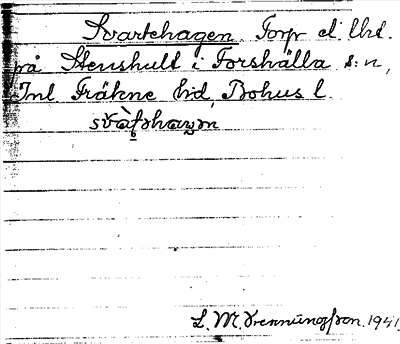 Svartehagen. Torp el. lht.
på Stenshult i Forshälla s:n,
Inl. Fräkne hd, Bohus l.
L. M. Svenningsson. 1941.